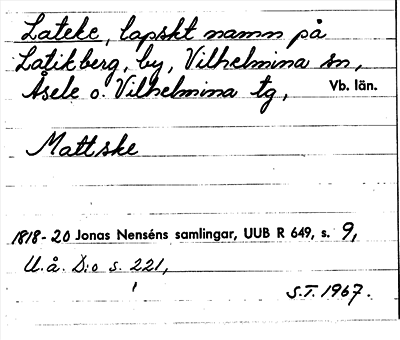 Lateke, lapskt namn på
Latikberg, by, Vilhelmina sn,
Åsele o. Vilhelmina tg, Vb. län.
Mattske
1818-20 Jonas Nenséns samlingar, UUB R 649, s. 9,
U.å. D:o s. 221,
S.T. 1967.